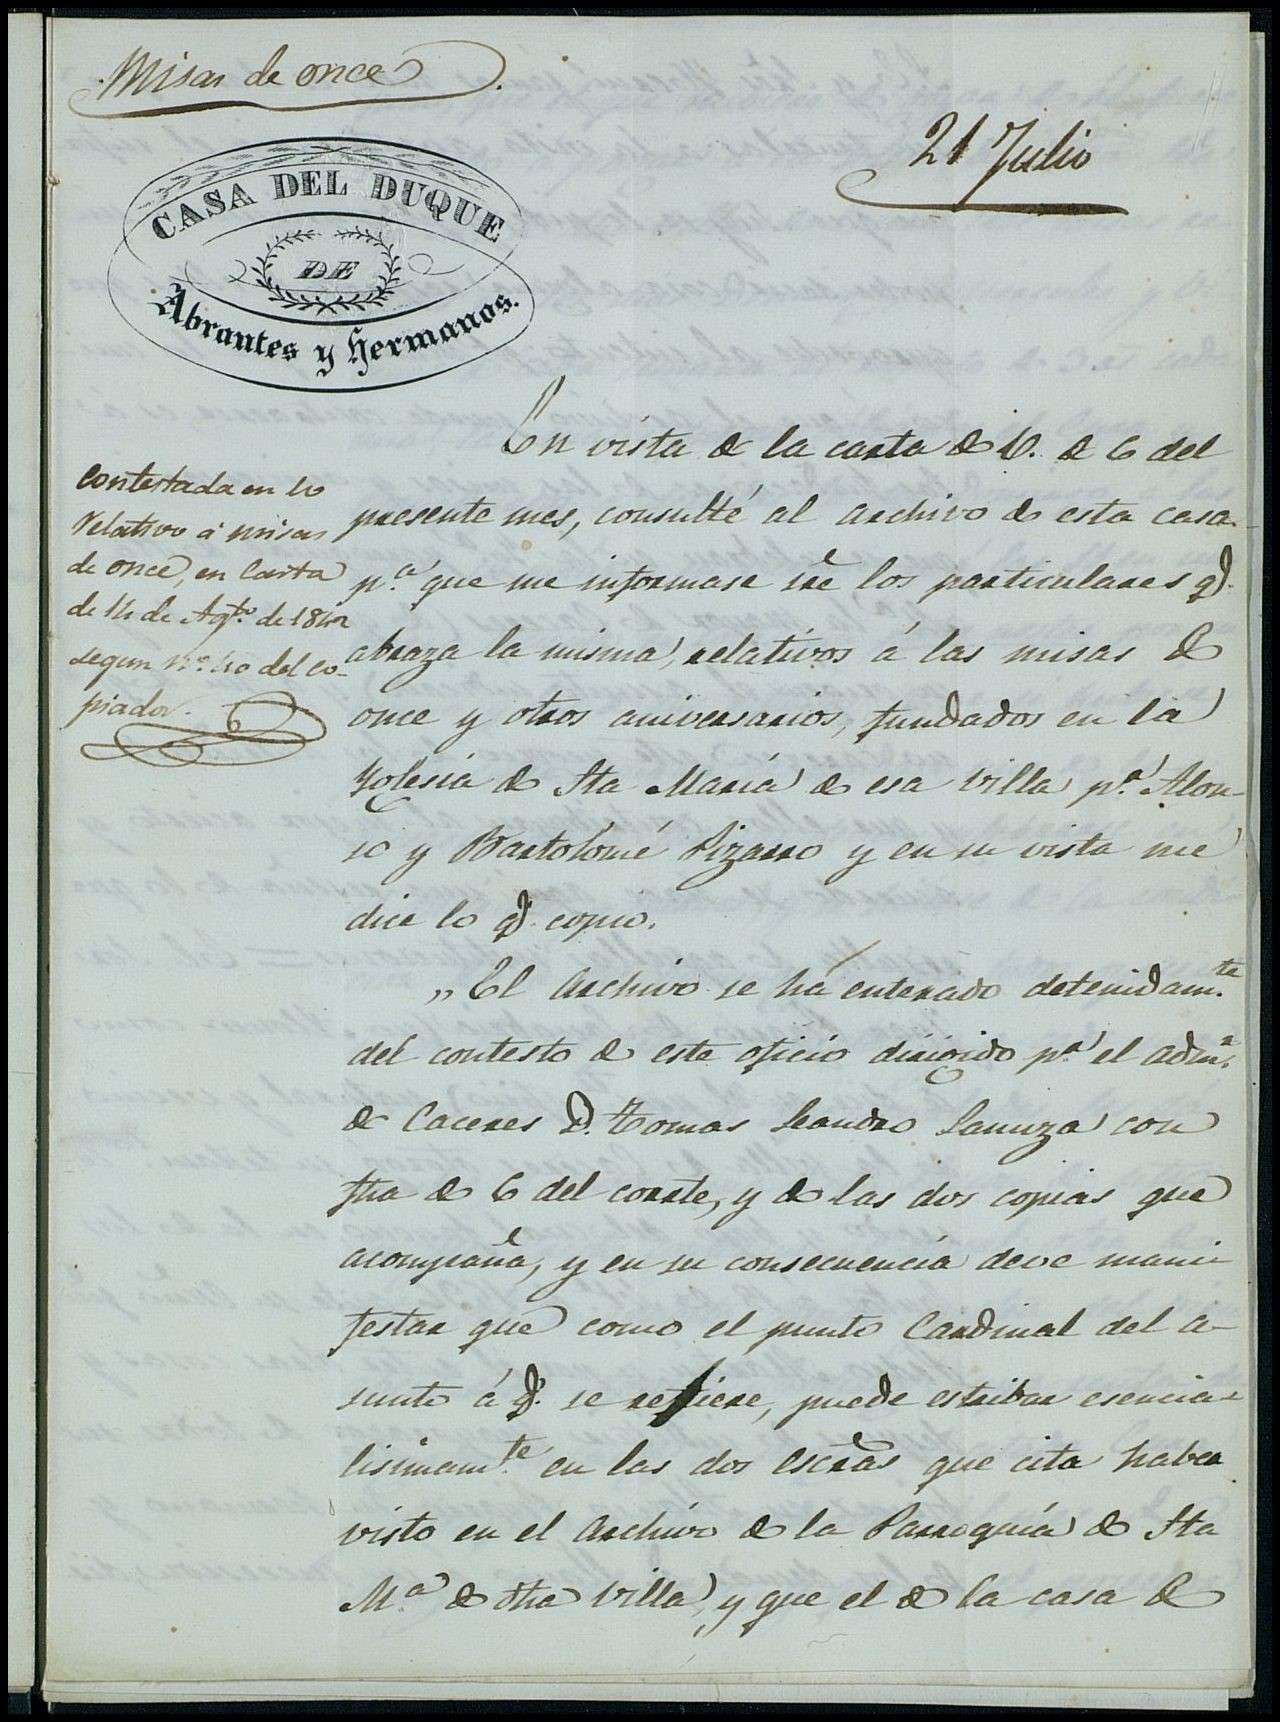 Misas de once
21 Julio
CASA DEL DUQUE
DE
Abrantes y Hermanos.
contestada en lo
relativo á misas
de once, en Carta
de 14 de Agto. de 1842
segun no. 40 del co-
piador.
En vista de la carta de V. de 6 del
presente mes, consulté al archivo de esta casa
pa. que me informase sre los particulares q.
abraza la misma, relativos á las misas de
once y otros aniversarios, fundados en la
Yglesia de Sta Maria de esa villa pr. Alon-
so y Bartolomé Pizarro y en su vista me
dice lo q. copio.
„El archivo se há enterado detenidamte.
del contesto de este oficio dirigido pr. el admr.
de Caceres D. Tomas Leandro Lanuza con
fha de 6 del corrte, y de las dos copias que
acompaña, y en su consecuencia deve mani-
festar que como el punto Cardinal del a-
sunto á q. se refiere, puede estribar esencia-
lisimamte. en las dos escras que cita haber
visto en el archivo de la Parroquia de Sta
Ma. de dha villa, y que el de la casa de